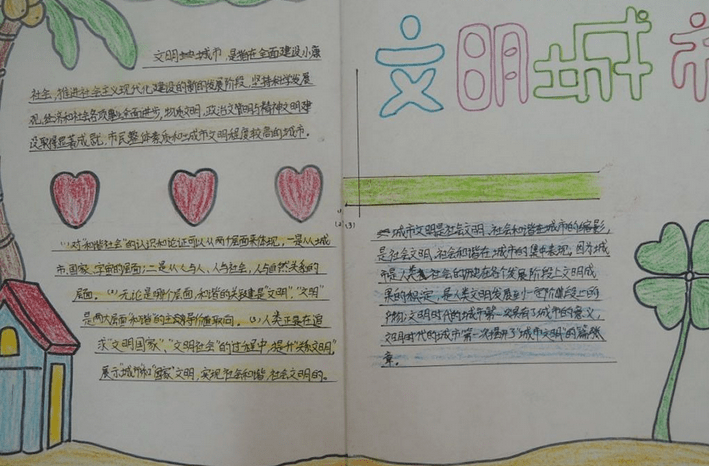 文明城市
文明城市，是指在全面建设小康
社会，推进社会主义现代化建设的新的发展阶段，坚持科学发展
观，经济和社会各项事业全面进步，物质文明、政治文明与精神文明建
设取得显著成就，市民整体素质和城市文明程度较高的城市。
(1)对"和谐社会"的认识和论证可以从两个层面来体现，一是从城
市、国家、宇宙的层面；二是从人与人、人与社会，人与自然关系的
层面。 无论是哪个层面，和谐的关键是"文明"，"文明"
是两大层面和谐的主导价值取向。 人类正是在追
求"文明国家"、"文明社会"的过程中，提升
展示城市和"国家"文明，实现社会和谐，社会文明的。
城市文明是社会文明、社会和谐在城市的缩影，
是社会文明、社会和谐在城市的集中表现，因为城
市是人类社会的历史在各个发展阶段上文明成
果的标定，是人类文明发展到一定阶段上的
产物；文明时代的城市第一次具有了城市的意义，
文明时代的城市第一次揭开了"城市文明"的篇
章。